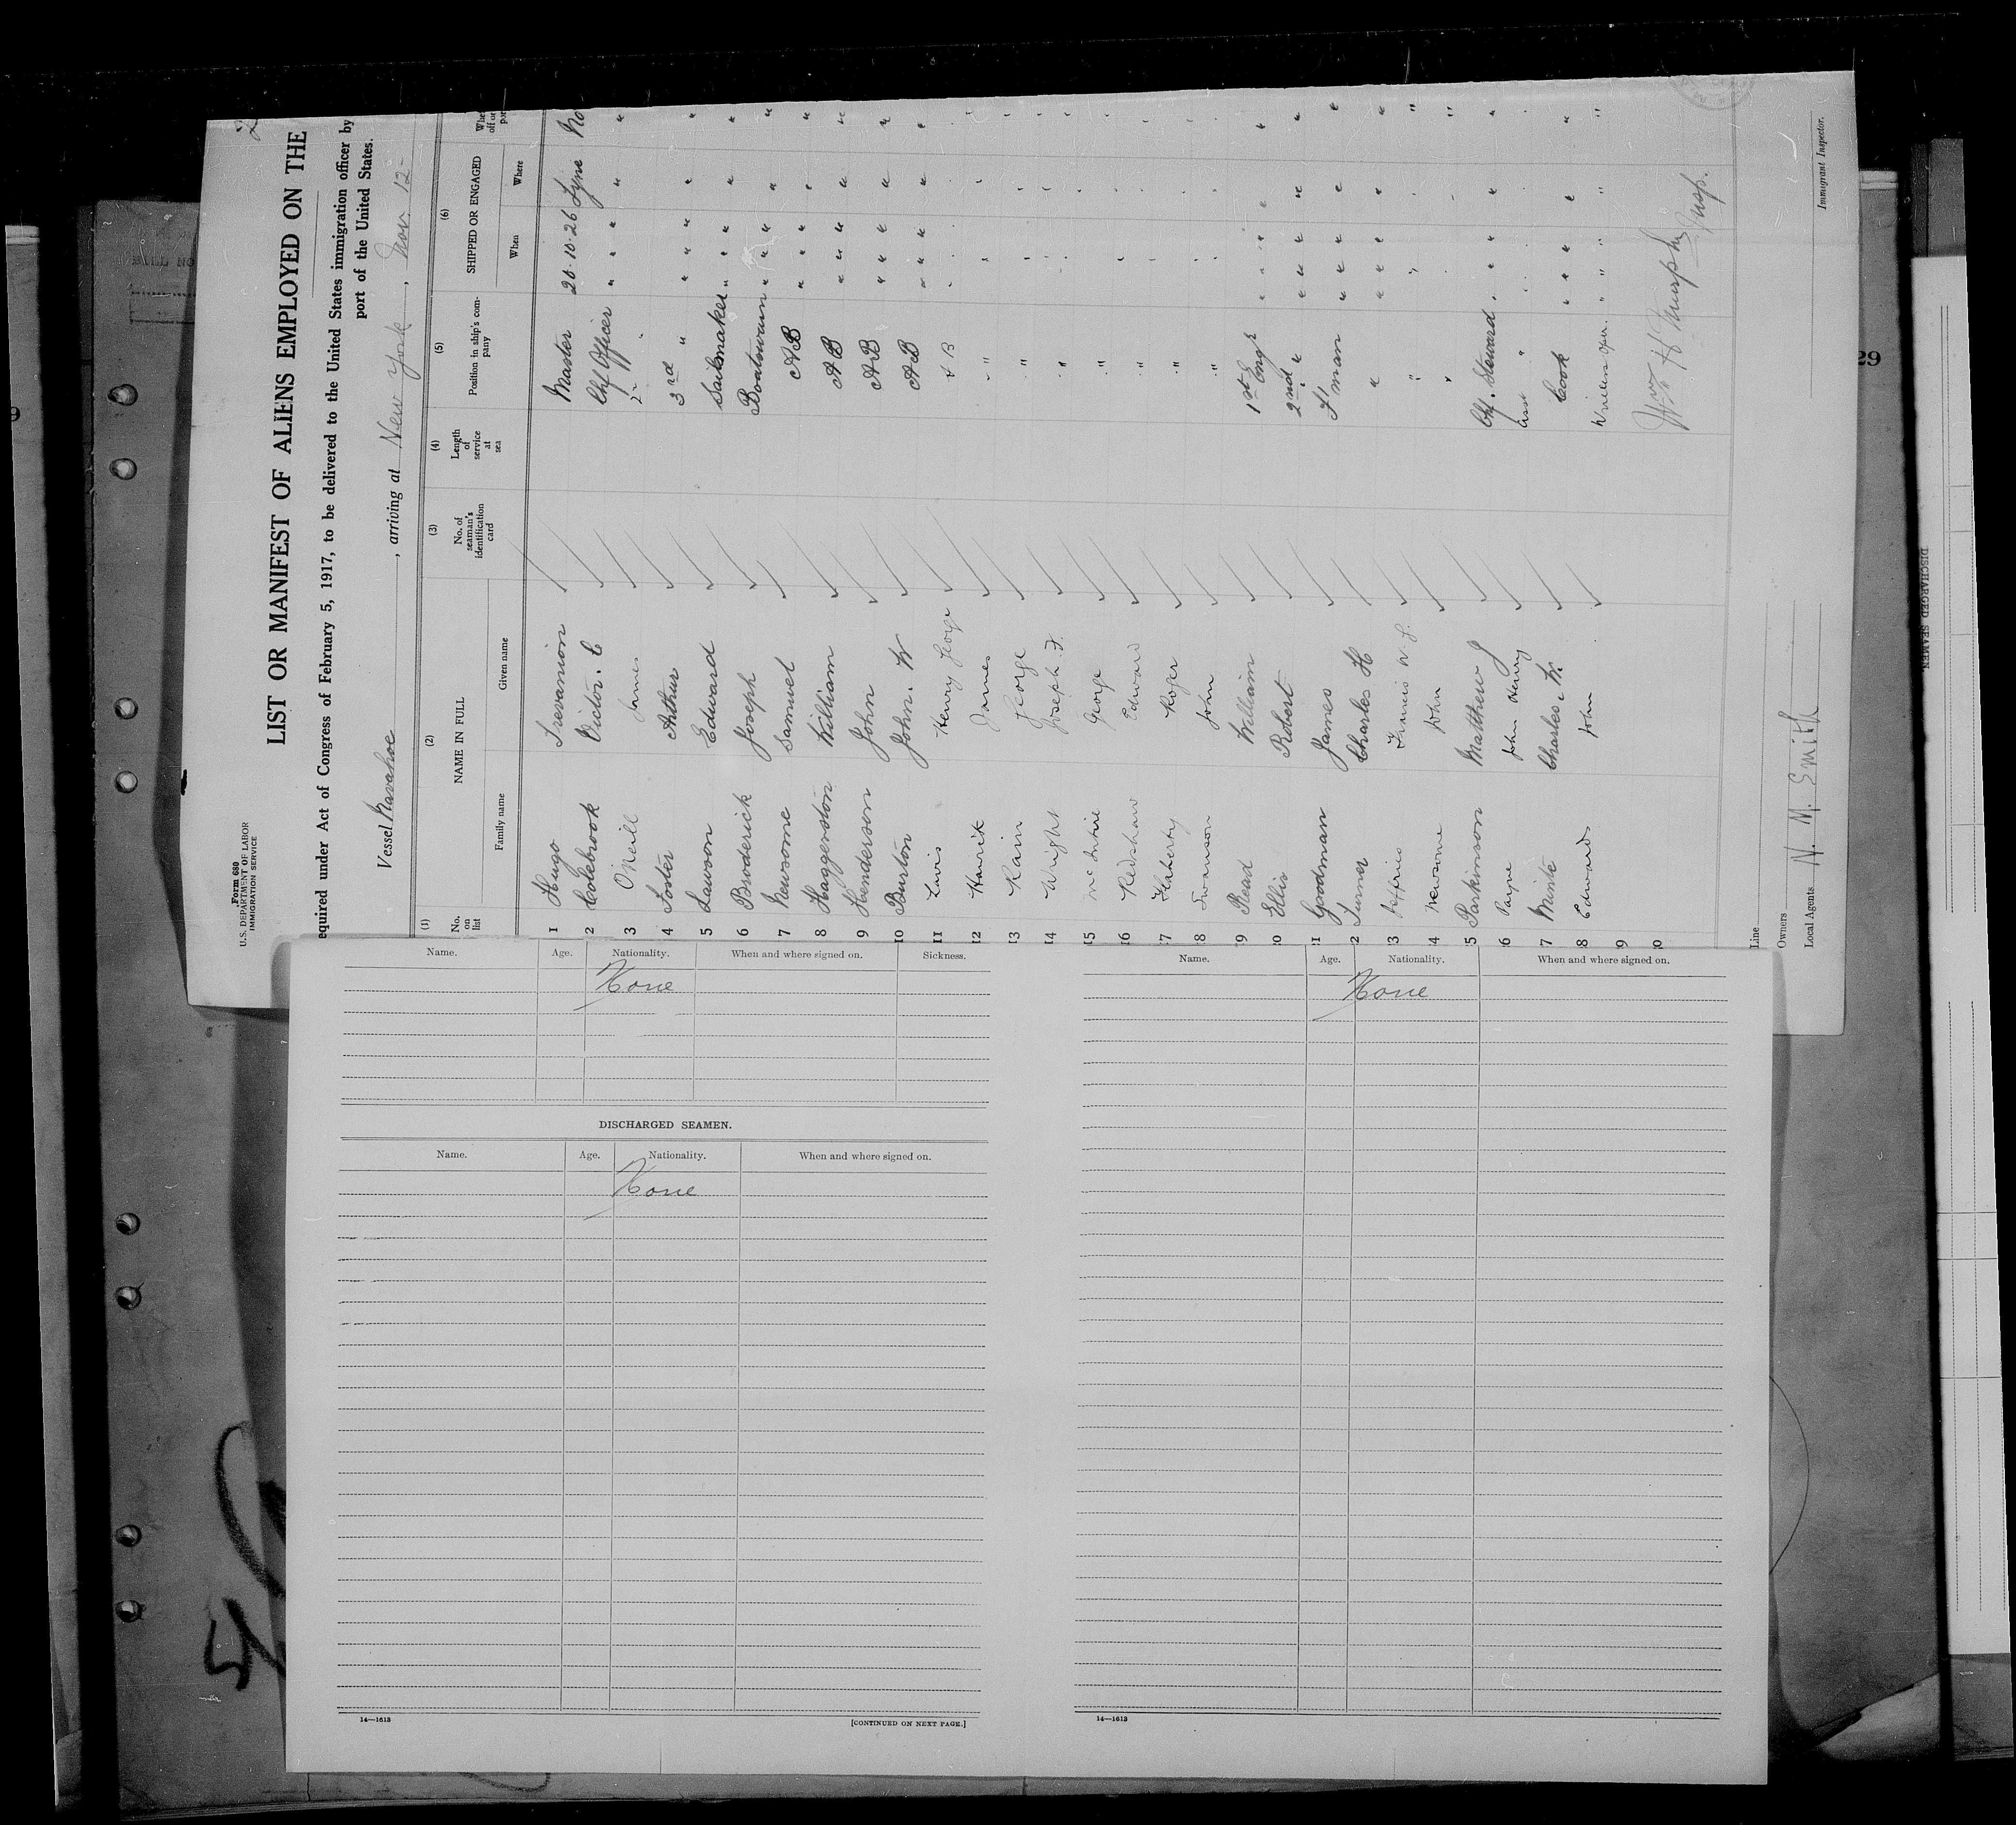 Form 680
U.S. DEPARTMENT OF LABOR
IMMIGRATION SERVICE
LIST OR MANIFEST OF ALIENS EMPLOYED ON THE
equired under Act of Congress of February 5, 1917, to be delivered to the United States immigration officer by
port of the United States.
Vessel Navahoe, arriving at New York, Nov. 12-
(1) (2) (3) (4) (5) (6)
No. on list NAME IN FULL No. of seaman's identification card Length of service at sea Position in ship's com-pany SHIPPED OR ENGAGED
Family name Given name When Where
1 Hugo Trevanion Master 20·10·26 Tyne No
2 Colebrook Victor. C Chf Officer " " " " "
3 O'Neill James 2 "
4 Foster Arthur 3rd " " " " " "
5 Lawson Edward Sailmaker " " " " "
6 Broderick Joseph Boatswain " " " " "
7 Newsome Samuel AB " " " " "
8 Haggerston William AB " " " " "
9 Henderson John AB " " " " "
10 Burton John. W AB " " " " "
11 Henry George AB
12 James "
13 Kain George "
14 Wright Joseph. F. "
15 McIntire George "
16 Redshaw Edward "
17 Flaherty Roger "
18 Swanson John "
9 Read William 1st Engr " " " " "
0 Ellis Robert 2nd " " " " " "
1 Goodman James F'man " " " " "
2 Turner Charles H " " " " " "
3 Jeffries W. "
4 Newsome John "
5 Parkinson Matthew J Chf. Steward " " " " "
6 Payne John Henry Asst "
7 Minto Charles. W. Cook " " " " "
8 Edwards John Wireless Oper. " " " " "
9
0
Wm H Murphy
Insp.
Line
Owners
Local Agents N. M. Smith
Immigrant Inspector.
Name. Age. Nationality. When and where signed on. Sickness.
None
DISCHARGED SEAMEN.
Name. Age. Nationality. When and where signed on.
None
14—1613 [CONTINUED ON NEXT PAGE.]
Name. Age. Nationality. When and where signed on.
None
14—1613
29
DISCHARGED SEAMEN